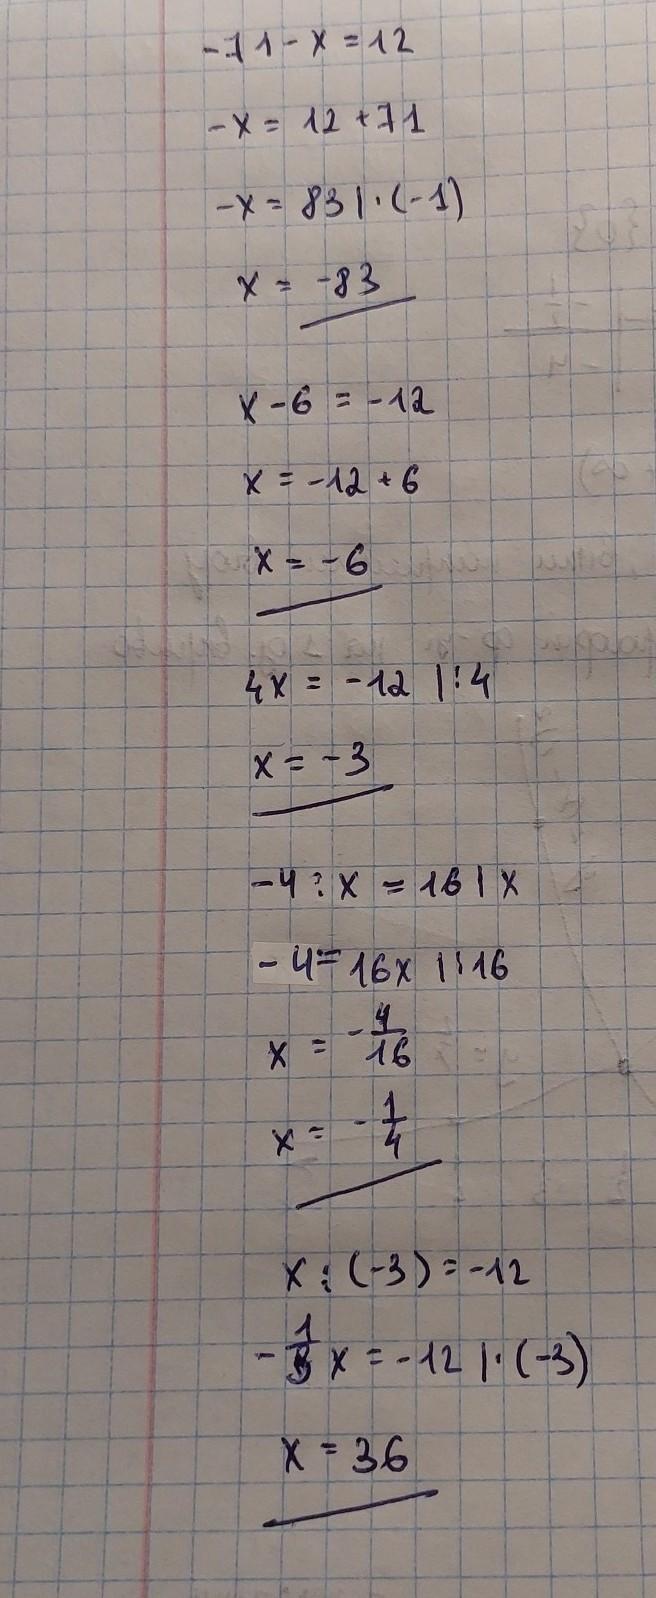 -71-x=12
-x= 12+71
-x= 83|·(-1)
x = -83
x-6 = -12
x = -12+6
x = -6
4x = -12 |:4
x = -3
-4:x = 16|x
-4=16x |:16
x = -4/16
x = -1/4
x:(-3)=-12
-1/3x=-12|·(-3)
x = 36